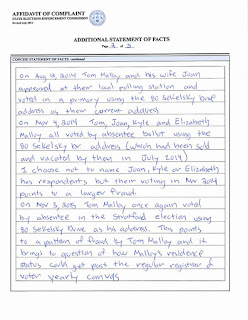 AFFIDAVIT OF COMPLAINT
STATE ELECTIONS ENFORCEMENT COMMISSION
ADDITIONAL STATEMENT OF FACTS
Page 3 of 3
CONCISE STATEMENT OF FACTS continued
On Aug 12, 2014 Tom Malloy and his wife Joan
appeared at their local polling station and
voted in a primary using the 90 Sekelsky Drive
address as their current address
On Nov 4, 2014 Tom, Joan, Kyle and Elizabeth
Malloy all voted by absentee ballot using the
90 Sekelsky Dr address (which had been sold
and vacated by them in July 2014)
I choose not to name Joan, Kyle or Elizabeth
has respondents, but their voting in Nov 2014
points to a larger fraud
On Nov 3, 2015 Tom Malloy once again voted
by absentee in the Stratford election using
90 Sekelsky Drive as his address. This points
to a pattern of fraud by Tom Malloy and it
brings to question of how Malloy's residence
status could get past the regular registrar of
voter yearly canvas